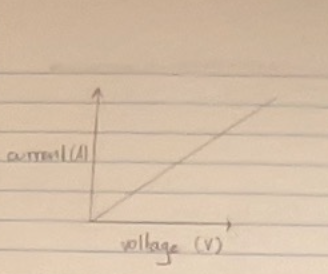 current (A)
voltage (V)